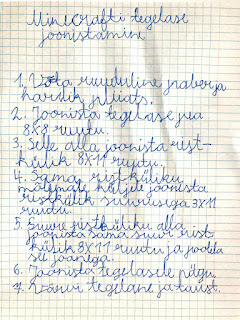 Minecrafti tegelase
joonistamine
1. Võta ruuduline paber ja
harilik pliiats.
2. Joonista tegelase pea
8x8 ruutu.
3. Selle alla joonista rist-
külik 8x11 ruutu.
4. Sama ristküliku
mõlemale küljele joonista
ristkülik suurusega 3x11
ruutu.
5. Suure ristküliku alla
joonista sama suur rist-
külik 8x11 ruutu ja poolita
see joonega.
6. Joonista tegelasele nägu.
7. Värvi tegelane ja taust.